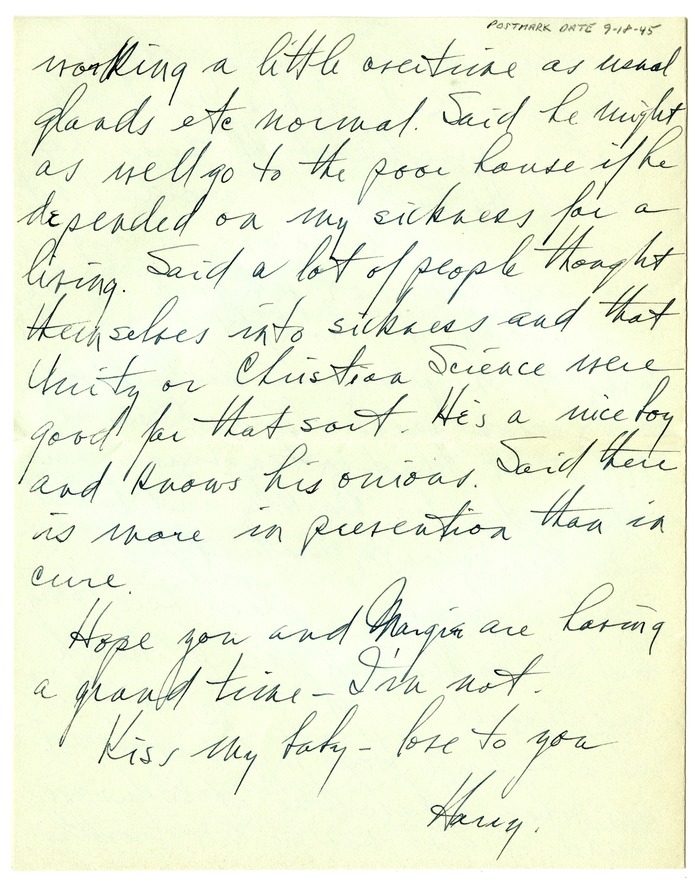 POSTMARK DATE 9-18-45
working a little overtime as usual
glands etc normal. Said he might
as well go to the poor house if he
depended on my sickness for a
living. Said a lot of people thought
themselves into sickness and that
Unity or Christian Science were
good for that sort. He's a nice boy
and knows his onions. Said there
is more in prevention than in
cure.
Hope you and Margie are having
a grand time - I'm not.
Kiss my baby - love to you
Harry.